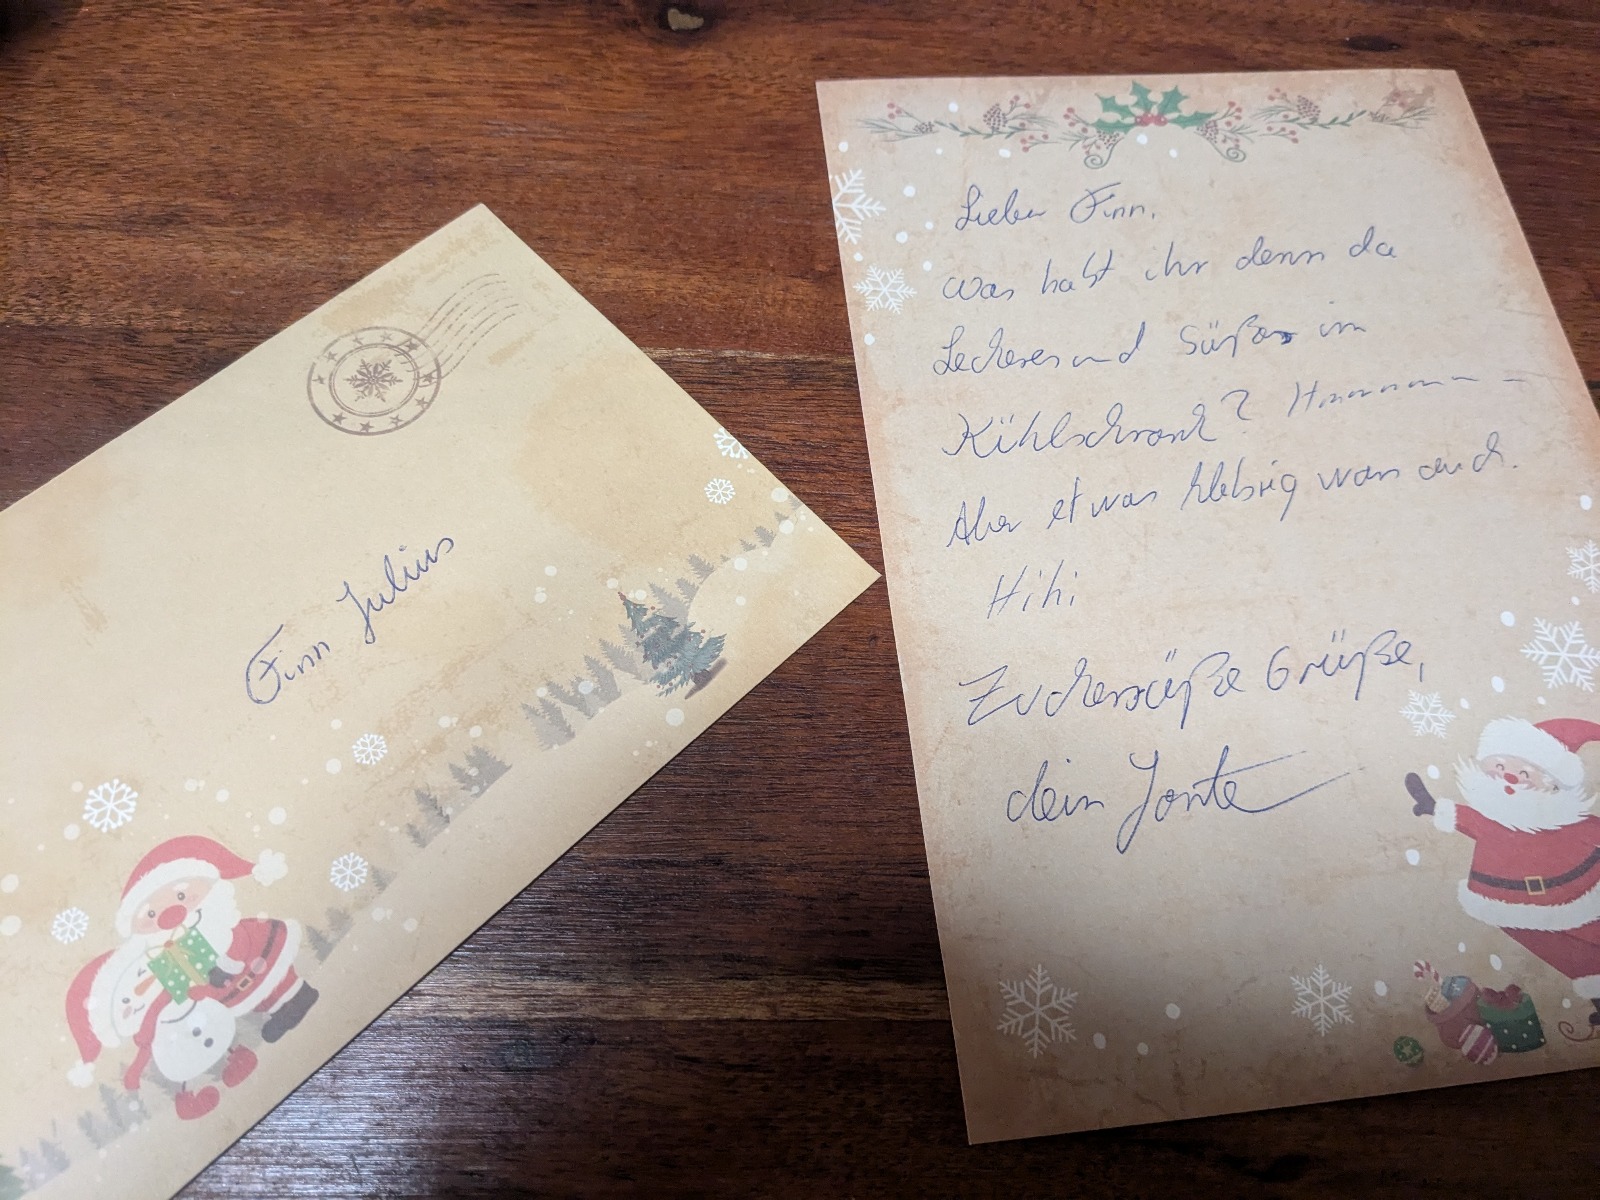 Finn Julius
Lieber Finn,
was habt ihr denn da
Leckeres und Süßes im
Kühlschrank? Hmmmm - -
Aber etwas klebrig wars auch.
Hihi
Zuckersüße Grüße,
dein Jonte